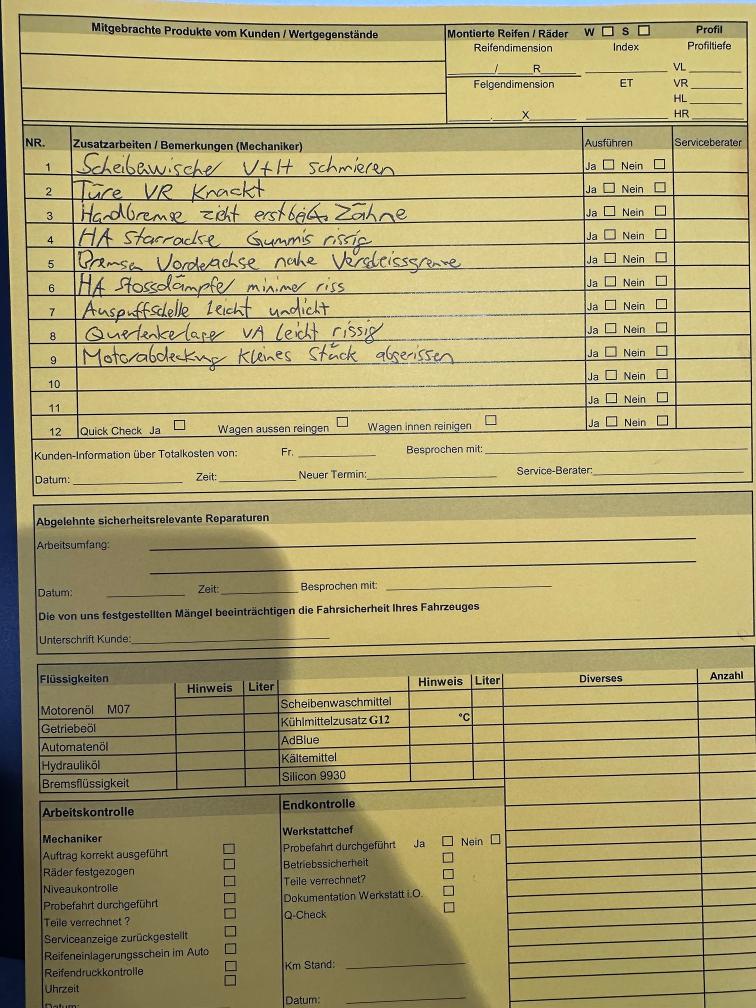 Mitgebrachte Produkte vom Kunden / Wertgegenstände
Montierte Reifen / Räder W ☐ S ☐ Profil
Reifendimension Index Profiltiefe
/ R VL
Felgendimension ET VR
HL
X HR
NR. Zusatzarbeiten / Bemerkungen (Mechaniker) Ausführen Serviceberater
1 Scheibenwischer V+H schmieren Ja ☐ Nein ☐
2 Türe VR Knackt Ja ☐ Nein ☐
3 Handbremse zieht erst bei 4 Zähne Ja ☐ Nein ☐
4 HA Starrachse Gummis rissig Ja ☐ Nein ☐
5 Bremsen Vorderachse nahe Verschleissgrenze Ja ☐ Nein ☐
6 HA Stossdämpfer minimer riss Ja ☐ Nein ☐
7 Auspuffschelle leicht undicht Ja ☐ Nein ☐
8 Querlenkerlager VA leicht rissig Ja ☐ Nein ☐
9 Motorabdeckung kleines Stück abgerissen Ja ☐ Nein ☐
10 Ja ☐ Nein ☐
11 Ja ☐ Nein ☐
12 Quick Check Ja ☐ Wagen aussen reingen ☐ Wagen innen reinigen ☐ Ja ☐ Nein ☐
Kunden-Information über Totalkosten von: Fr. Besprochen mit:
Datum: Zeit: Neuer Termin: Service-Berater:
Abgelehnte sicherheitsrelevante Reparaturen
Arbeitsumfang:
Datum: Zeit: Besprochen mit:
Die von uns festgestellten Mängel beeinträchtigen die Fahrsicherheit Ihres Fahrzeuges
Unterschrift Kunde:
Flüssigkeiten Hinweis Liter Hinweis Liter Diverses Anzahl
Motorenöl M07 Scheibenwaschmittel
Getriebeöl Kühlmittelzusatz G12 °C
Automatenöl AdBlue
Hydrauliköl Kältemittel
Bremsflüssigkeit Silicon 9930
Arbeitskontrolle Endkontrolle
Mechaniker Werkstattchef
Auftrag korrekt ausgeführt ☐ Probefahrt durchgeführt Ja ☐ Nein ☐
Räder festgezogen ☐ Betriebssicherheit ☐
Niveaukontrolle ☐ Teile verrechnet? ☐
Probefahrt durchgeführt ☐ Dokumentation Werkstatt i.O. ☐
Teile verrechnet ? ☐ Q-Check ☐
Serviceanzeige zurückgestellt ☐
Reifeneinlagerungsschein im Auto ☐
Reifendruckkontrolle ☐ Km Stand:
Uhrzeit ☐
Datum: Datum: